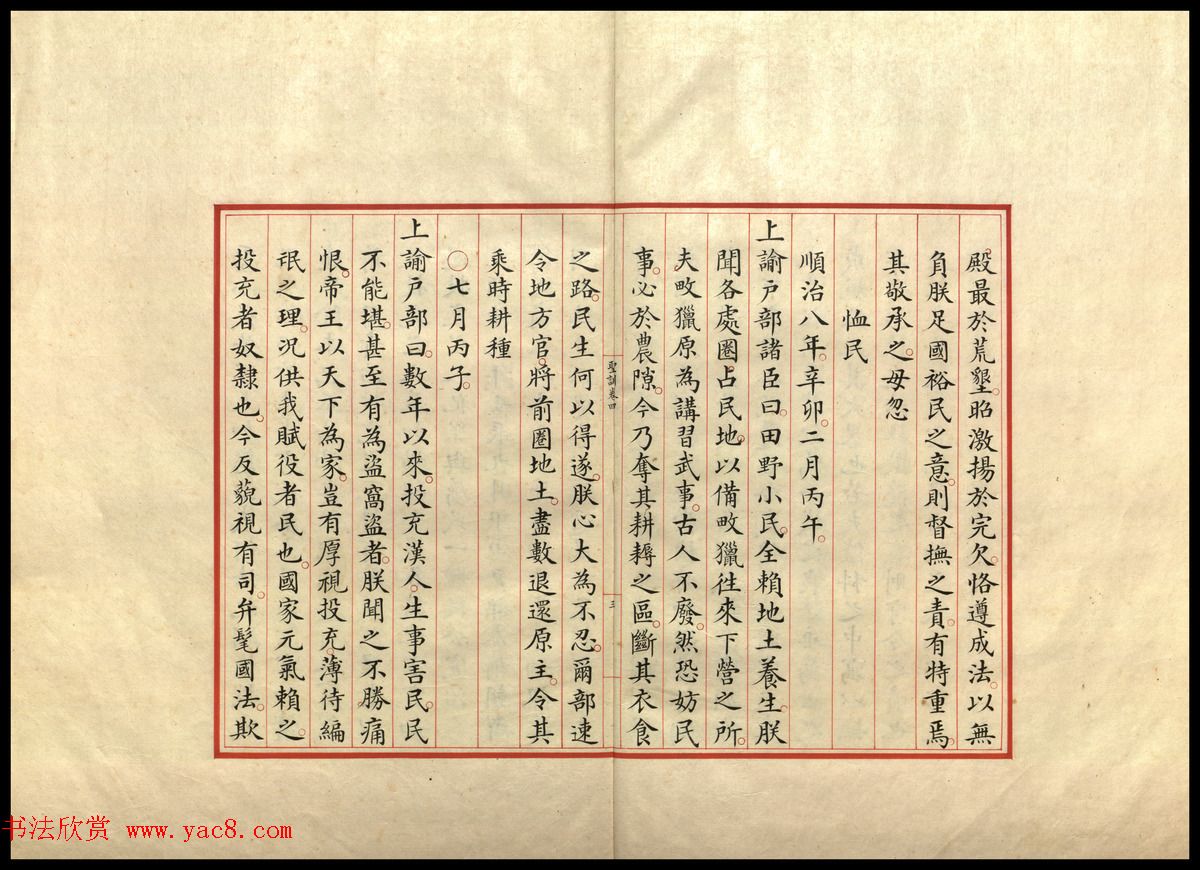 殿最於荒墾。昭激揚於完欠。恪遵成法。以無
負朕足國裕民之意。則督撫之責。有特重焉。
其敬承之。毋忽
恤民
順治八年。辛卯。二月丙午。
上諭戶部諸臣曰。田野小民。全賴地土養生。朕
聞各處圈占民地。以備畋獵往來下營之所。
夫畋獵原為講習武事。古人不廢。然恐妨民
事。必於農隙。今乃奪其耕耨之區。斷其衣食
聖訓卷四
三
之路。民生何以得遂。朕心大為不忍。爾部速
令地方官。將前圈地土。盡數退還原主。令其
乘時耕種
○七月丙子。
上諭戶部曰。數年以來。投充漢人。生事害民。民
不能堪。甚至有為盜窩盜者。朕聞之不勝痛
恨。帝王以天下為家。豈有厚視投充。薄待編
氓之理。況供我賦役者民也。國家元氣賴之。
投充者奴隸也。今反藐視有司。弁髦國法。欺
书法欣赏 www.yac8.com